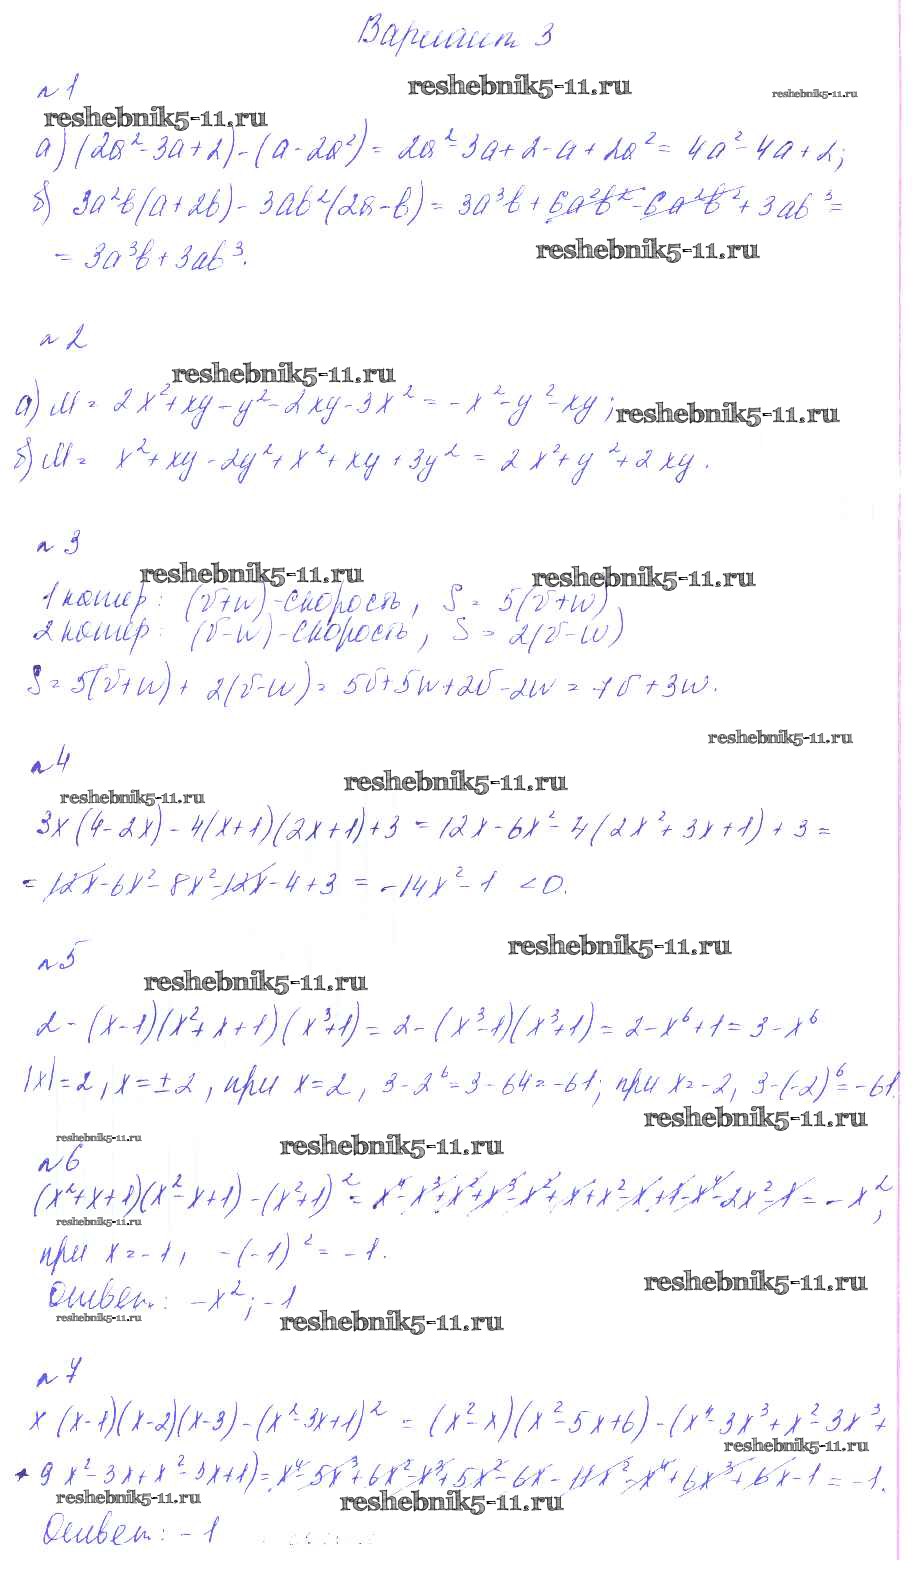 Вариант 3
n 1
reshebnik5-11.ru
reshebnik5-11.ru
reshebnik5-11.ru
а) (2a² - 3a + 2) - (a - 2a²) = 2a² - 3a + 2 - a + 2a² = 4a² - 4a + 2;
б) 3a²b(a + 2b) - 3ab²(2a - b) = 3a³b + 6a²b² - 6a²b² + 3ab³ =
= 3a³b + 3ab³.
reshebnik5-11.ru
n 2
reshebnik5-11.ru
а) M = 2x² + xy - y² - 2xy - 3x² = -x² - y² - xy;
reshebnik5-11.ru
б) M = x² + xy - 2y² + x² + xy + 3y² = 2x² + y² + 2xy.
n 3
reshebnik5-11.ru
reshebnik5-11.ru
1 катер: (v+w) - скорость, S = 5(v+w)
2 катер: (v-w) - скорость, S = 2(v-w)
S = 5(v+w) + 2(v-w) = 5v + 5w + 2v - 2w = 7v + 3w.
reshebnik5-11.ru
n 4
reshebnik5-11.ru
reshebnik5-11.ru
3x(4 - 2x) - 4(x+1)(2x+1) + 3 = 12x - 6x² - 4(2x² + 3x + 1) + 3 =
= 12x - 6x² - 8x² - 12x - 4 + 3 = -14x² - 1 < 0.
reshebnik5-11.ru
n 5
reshebnik5-11.ru
2 - (x-1)(x² + x + 1)(x³+1) = 2 - (x³-1)(x³+1) = 2 - x⁶ + 1 = 3 - x⁶
|x| = 2, x = ±2, при x = 2, 3 - 2⁶ = 3 - 64 = -61; при x = -2, 3 - (-2)⁶ = -61.
reshebnik5-11.ru
reshebnik5-11.ru
reshebnik5-11.ru
n 6
(x² + x + 1)(x² - x + 1) - (x² + 1)² = x⁴ - x³ + x² + x³ - x² + x + x² - x + 1 - x⁴ - 2x² - 1 = -x²;
reshebnik5-11.ru
при x = -1, -(-1)² = -1.
reshebnik5-11.ru
Ответ: -x²; -1
reshebnik5-11.ru
reshebnik5-11.ru
n 7
x(x-1)(x-2)(x-3) - (x² - 3x + 1)² = (x² - x)(x² - 5x + 6) - (x⁴ - 3x³ + x² - 3x³ +
reshebnik5-11.ru
+ 9x² - 3x + x² - 3x + 1) = x⁴ - 5x³ + 6x² - x³ + 5x² - 6x - 11x² - x⁴ + 6x³ + 6x - 1 = -1.
reshebnik5-11.ru
reshebnik5-11.ru
Ответ: -1